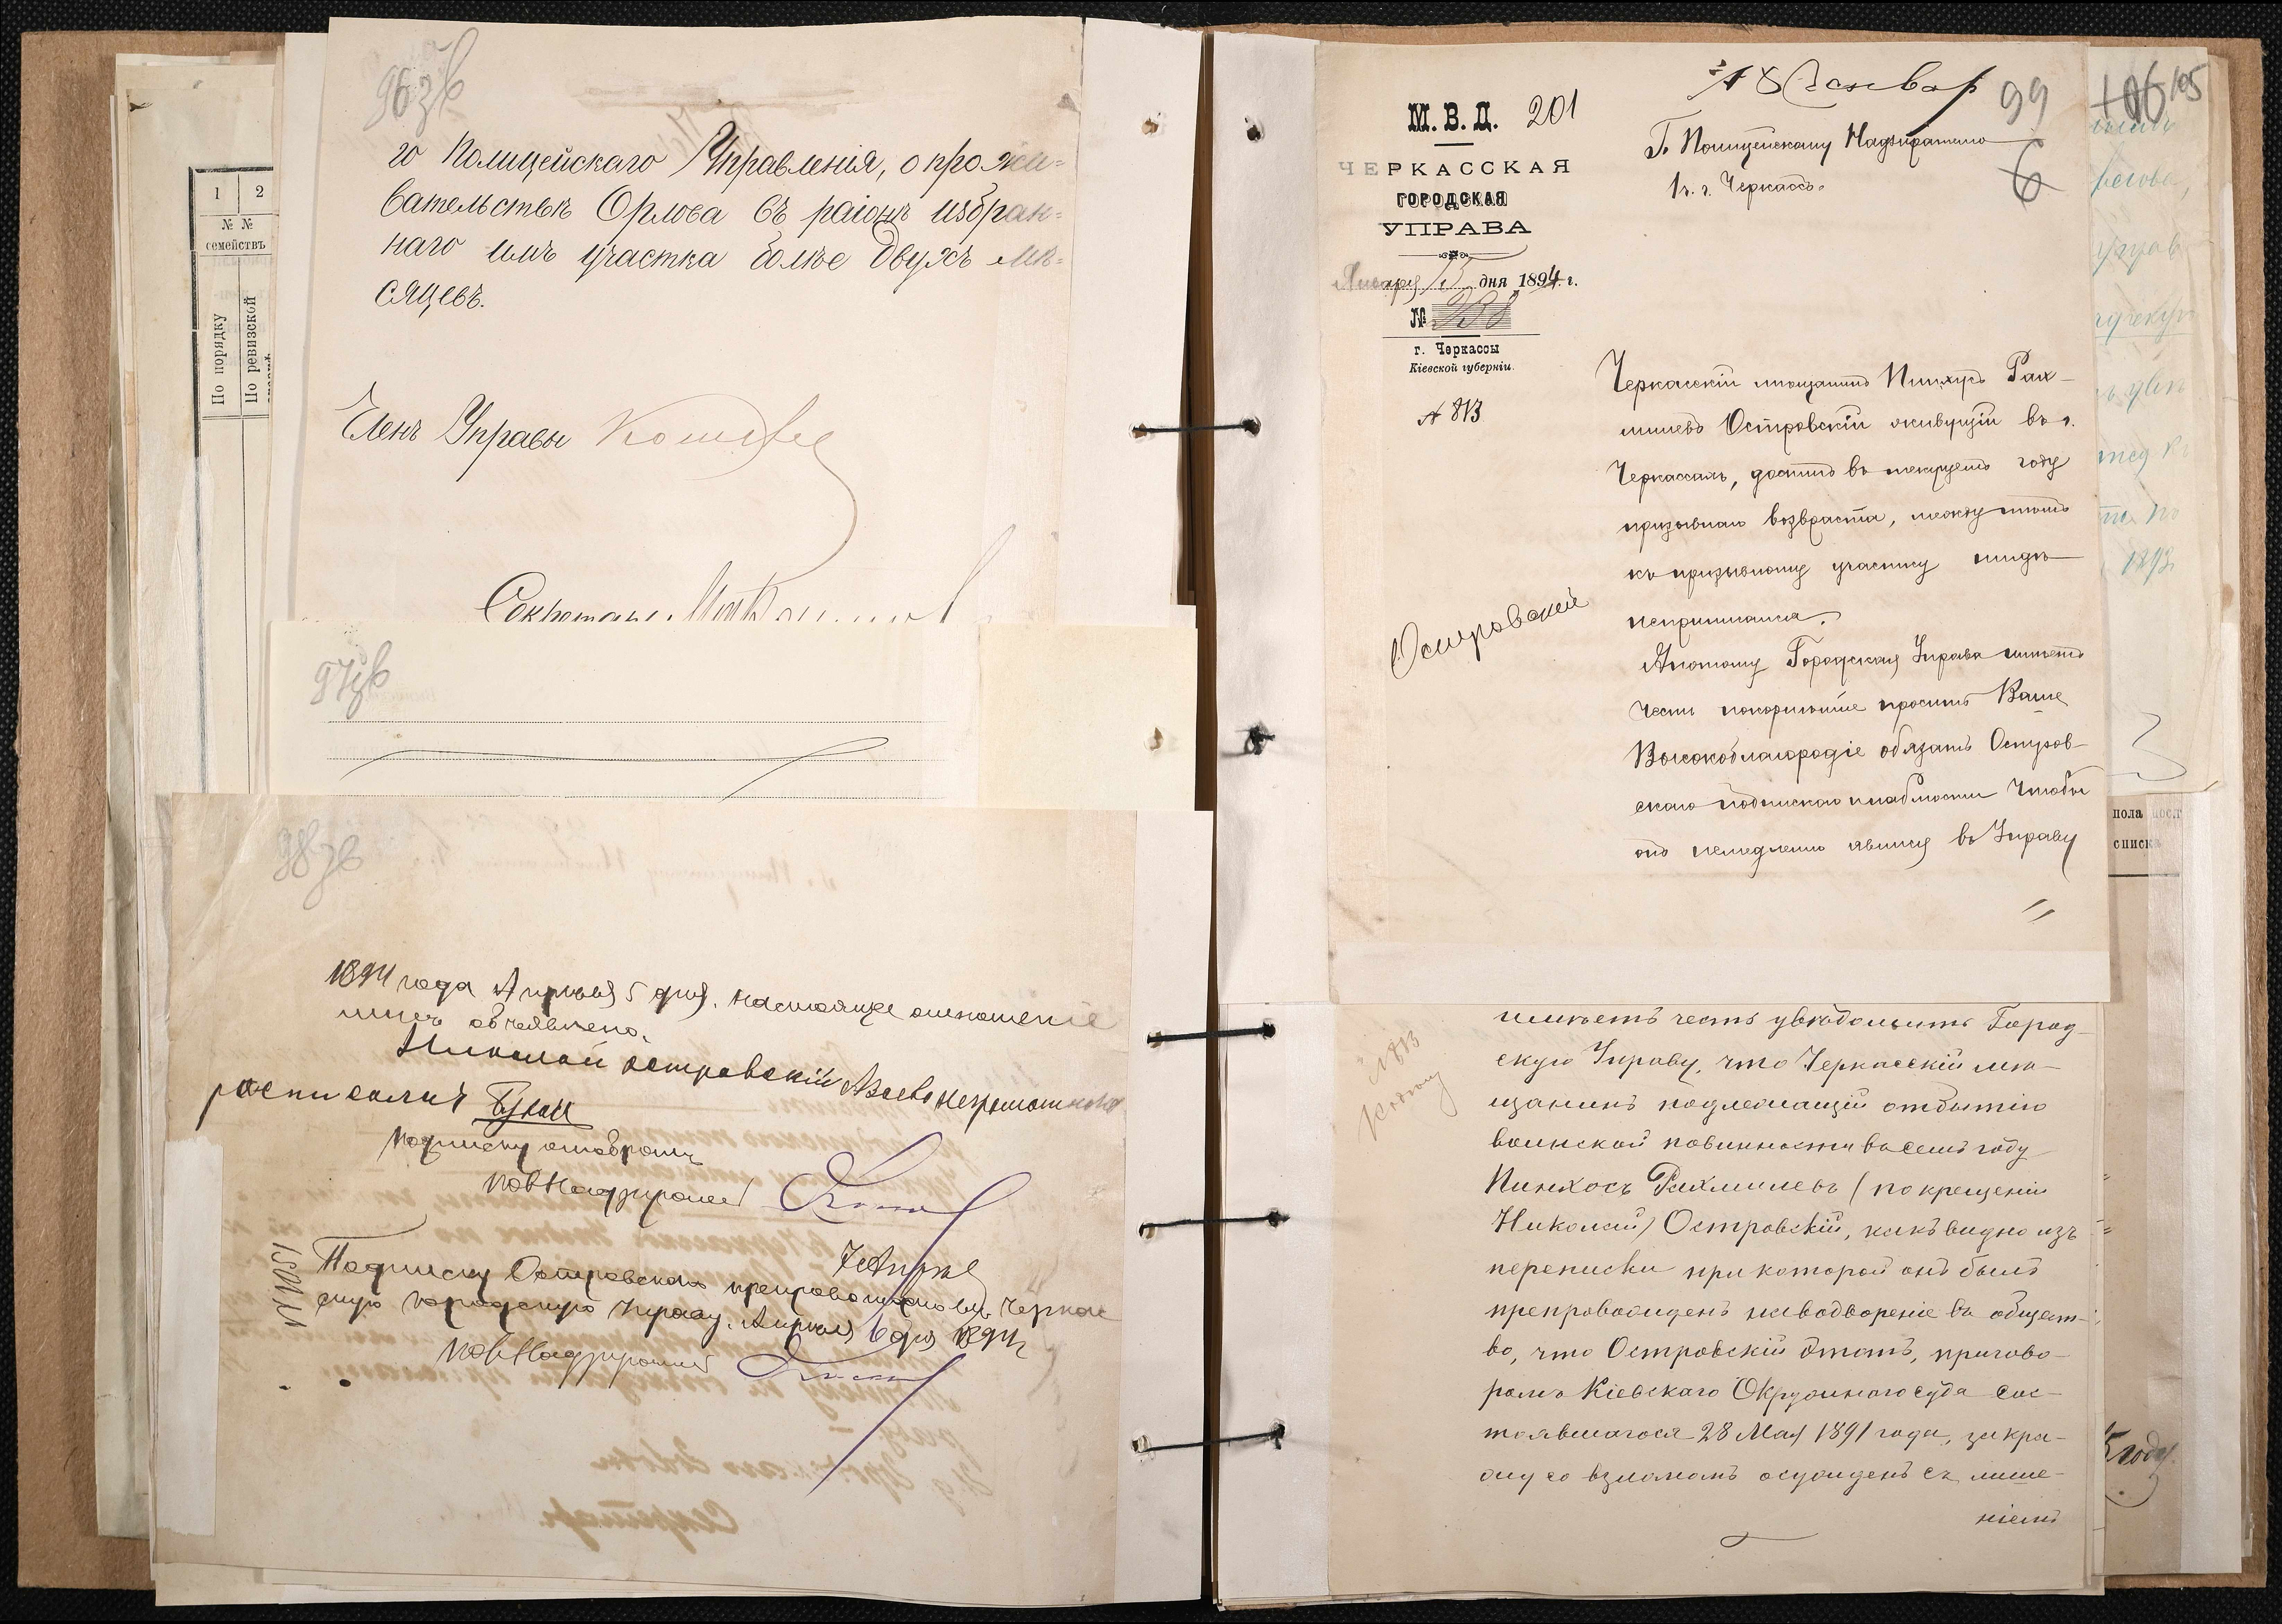 96 зв
го Полицейскаго Управленія, о прожи=
вательствѣ Орлова въ районѣ избран=
наго имъ участка болѣе двухъ мѣ=
сяцевъ.
Членъ Управы
Секретарь
97 зв
98 зв
1894 года Апрѣля 5 дня. Настоящее отношеніе
мнѣ объявлено.
Николай Островскій А за его неграмотного
росписался
Подписку отобралъ
Надзиратель
7 Апрѣля
Подписку Островскаго препровождаю въ Черкас
скую городскую Управу. Апрѣля 6 дня 1894 г
Надзиратель
1 2
№ № семействъ
По порядку
По ревизской
99
М. В. Д. 201
ЧЕРКАССКАЯ
ГОРОДСКАЯ
УПРАВА
Января 15 дня 1894 г.
№
г. Черкассы
Кіевской губерніи.
№ 813
18 Январ
Г. Полицейскому Надзирателю
1 ч. г. Черкассъ.
6
Островскій
Черкасскій мѣщанинъ Пинхусъ Рах-
милевъ Островскій живущій въ г.
Черкассахъ, достигъ въ текущемъ году
призывнаго возвраста, между тѣмъ
къ призывному участку нигдѣ
неприписался.
А потому Городская Управа имѣетъ
честь покорнѣйше просить Ваше
Высокоблагородіе обязать Остров-
скаго подпискою чтобы
онъ немедленно явился въ Управу
№ 813
имѣетъ честь увѣдомить Город-
скую Управу, что Черкасскій мѣ-
щанинъ подлежащій отбытію
воинской повинности въ семъ году
Пинхосъ Рахмилевъ (по крещеніи
Николай) Островскій, какъ видно изъ
переписки при которой онъ былъ
препровожденъ на водвореніе въ общест-
во, что Островскій этотъ, пригово-
ромъ Кіевскаго Окружного суда сос-
тоявшагося 28 Мая 1891 года, за кра-
жу со взломомъ осужденъ съ лише-
ніемъ
106
105
1893
пола посл
списк
5 году.